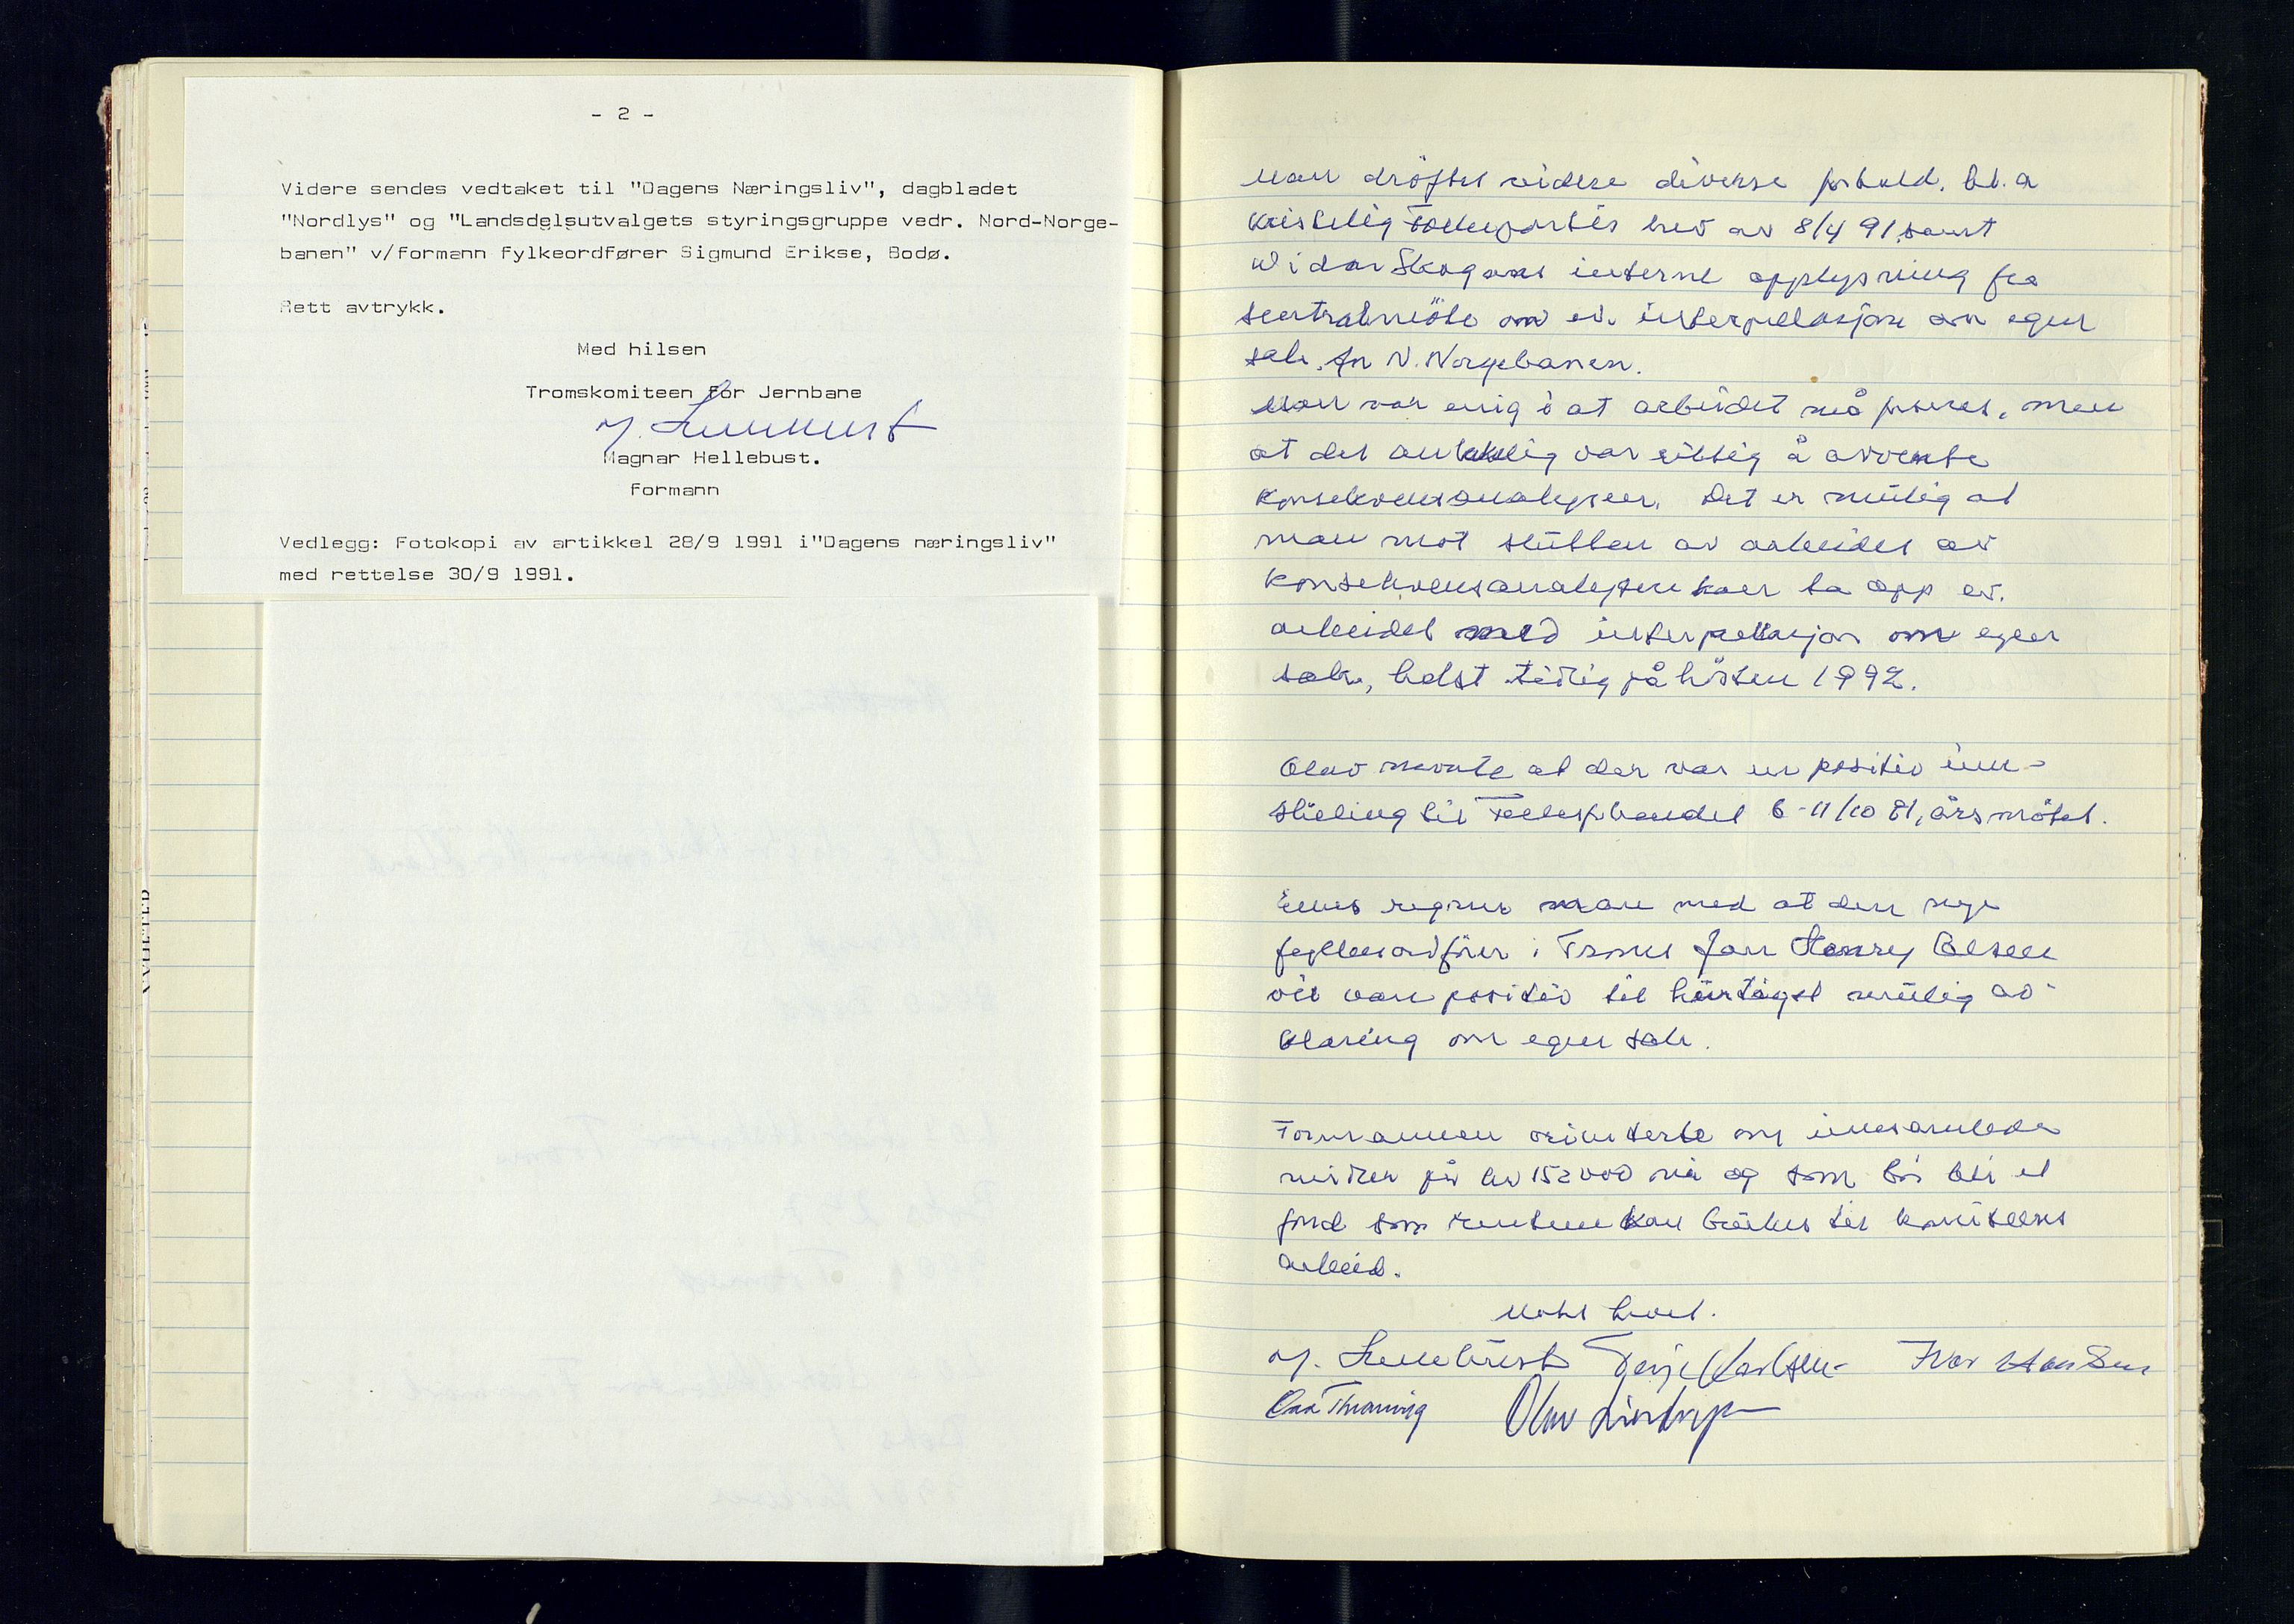 - 2 -
Videre sendes vedtaket til "Dagens Næringsliv", dagbladet
"Nordlys" og "Landsdelsutvalgets styringsgruppe vedr. Nord-Norge-
banen" v/formann fylkeordfører Sigmund Erikse, Bodø.
Rett avtrykk.
Med hilsen
Tromskomiteen for Jernbane
Magnar Hellebust.
formann
Vedlegg: Fotokopi av artikkel 28/9 1991 i"Dagens næringsliv"
med rettelse 30/9 1991.
Man dröftet videre diverse forhold, bl.a
Kristelig Folkepartis brev av 8/4 91, samt
Widar Skogans interne opplysning fra
sentralmöte om ev. interpellasjon om egen
sak for N. Norgebanen.
Man var enig i at arbeidet må föres, men
at det var riktig å avvente
Konsekvensanalysen. Det er mulig at
man mot slutten av arbeidet av
Konsekvensanalysen kan ta opp ev.
arbeidet med interpellasjon om egen
sak, helst tidlig på hösten 1992.
Olav mente at der var en positiv inn-
stilling til 11/10 årsmötet.
Ellers regner man med at den nye
fylkesordförer i Troms Jan Henry Olsen
vil være positiv til hurtigst mulig av-
klaring om egen sak.
Formannen orienterte om innsamlede
midler på kr 152000 nå og som bör bli et
fond som rentene kan brukes til komiteens
arbeid.
Möte hevet.
M. Hellebust Terje Karlsen Ivar Hansen
Olav